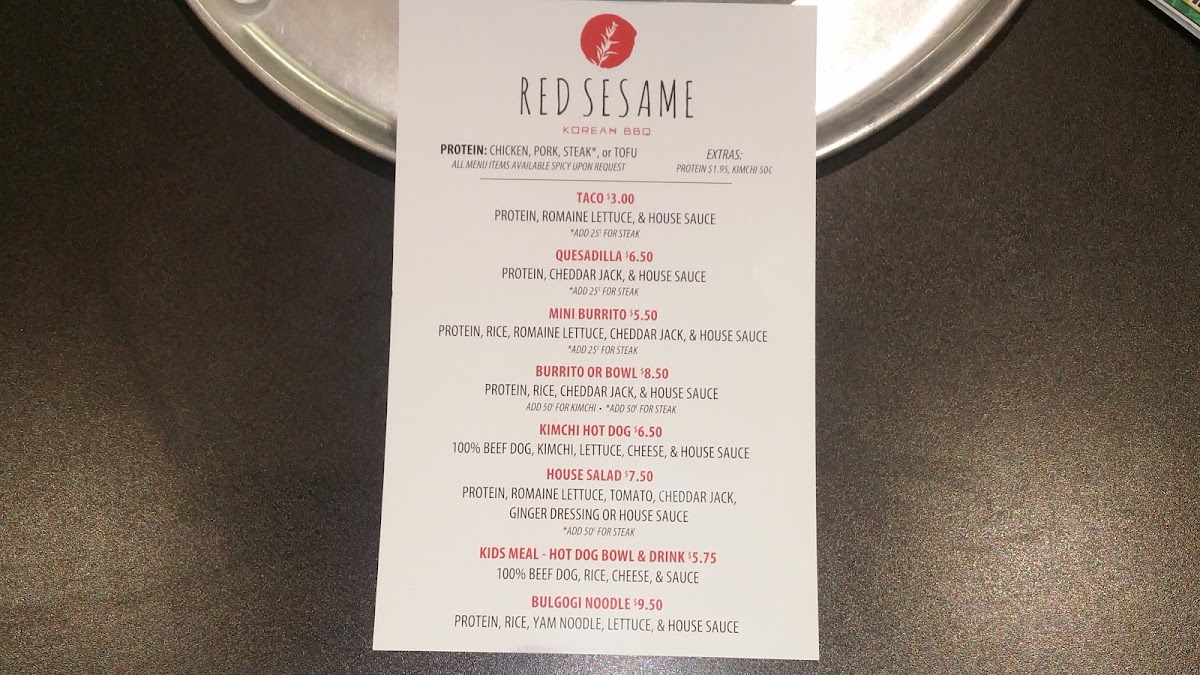 RED SESAME
KOREAN BBQ
PROTEIN: CHICKEN, PORK, STEAK*, or TOFU
ALL MENU ITEMS AVAILABLE SPICY UPON REQUEST
EXTRAS:
PROTEIN $1.95, KIMCHI 50¢
TACO $3.00
PROTEIN, ROMAINE LETTUCE, & HOUSE SAUCE
*ADD 25¢ FOR STEAK
QUESADILLA $6.50
PROTEIN, CHEDDAR JACK, & HOUSE SAUCE
*ADD 25¢ FOR STEAK
MINI BURRITO $5.50
PROTEIN, RICE, ROMAINE LETTUCE, CHEDDAR JACK, & HOUSE SAUCE
*ADD 25¢ FOR STEAK
BURRITO OR BOWL $8.50
PROTEIN, RICE, CHEDDAR JACK, & HOUSE SAUCE
ADD 50¢ FOR KIMCHI • *ADD 50¢ FOR STEAK
KIMCHI HOT DOG $6.50
100% BEEF DOG, KIMCHI, LETTUCE, CHEESE, & HOUSE SAUCE
HOUSE SALAD $7.50
PROTEIN, ROMAINE LETTUCE, TOMATO, CHEDDAR JACK,
GINGER DRESSING OR HOUSE SAUCE
*ADD 50¢ FOR STEAK
KIDS MEAL - HOT DOG BOWL & DRINK $5.75
100% BEEF DOG, RICE, CHEESE, & SAUCE
BULGOGI NOODLE $9.50
PROTEIN, RICE, YAM NOODLE, LETTUCE, & HOUSE SAUCE